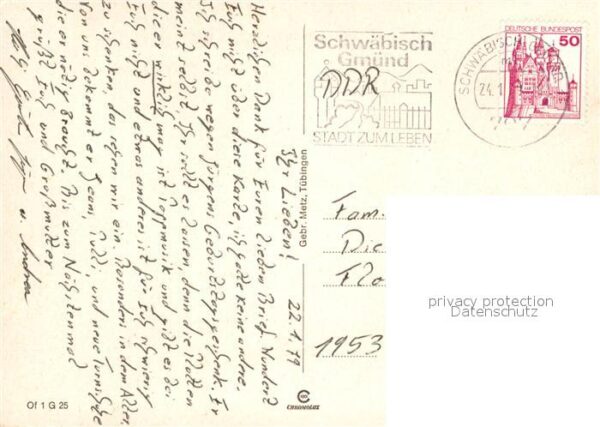 Schwäbisch
Gmünd
STADT ZUM LEBEN
SCHWÄBISCH GMÜND
24.1
DEUTSCHE BUNDESPOST
50
DDR
22.1.79
Ihr Lieben!
Herzlichen Dank für Euren lieben Brief. Wundert
Euch nicht über diese Karte, ich hatte keine andere.
Ich schreibe wegen Jürgens Geburtstagsgeschenk. Ihr
meint selbst, Ihr wollt es lassen, denn die Platten
die er wirklich mag ist Popmusik und gibt es bei
Euch nicht und etwas anderes ist für Euch schwierig
zu schenken, das sehen wir ein. Besonders in dem Alter.
Von uns bekommt er Jeans, Pulli, und neue Turnschuhe
die er nötig braucht. Bis zum Nächstenmal
grüßt Euch und Großmutter
Jürgen u. Andrea
Gebr. Metz, Tübingen
Fam.
Die
Flo
1953
privacy protection
Datenschutz
Of 1 G 25
CHROMOLUX